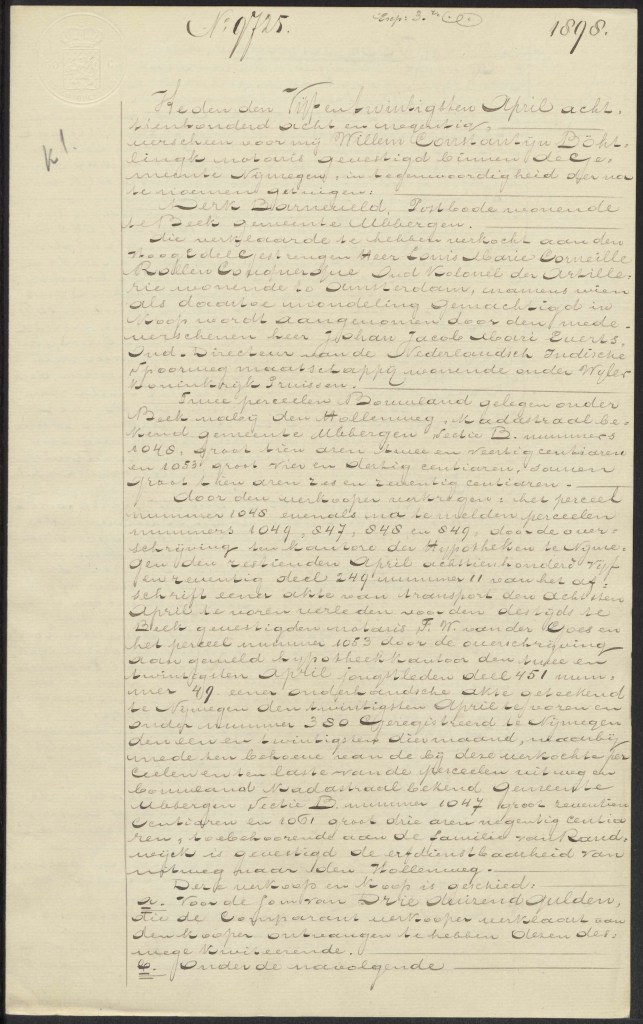 No: 9725. Exp: 3. 1898.
K1.
Heden den Vijf en twintigsten April acht-
tienhonderd acht en negentig,
verscheen voor mij Willem Constantijn Böht-
lingk notaris gevestigd binnen de Ge-
meente Nijmegen, in tegenwoordigheid der na
te noemen getuigen:
Derk Barneveld, Postbode wonende
te Beek gemeente Ubbergen.
die verklaarde te hebben verkocht aan den
HoogEdelGestrengen Heer Louis Marie Corneille
Oud Kolonel der Artille-
rie wonende te Amsterdam, namens wien
als daartoe mondeling gemachtigd in
koop wordt aangenomen door den mede
verschenen heer Johan Jacob Mari Everts,
Oud-Directeur van de Nederlandsch Indische
Spoorweg maatschappij wonende onder Wyler
Koninkrijk Pruissen.
Twee perceelen Bouwland gelegen onder
Beek nabij den Hollenweg, Kadastraal be-
kend gemeente Ubbergen Sectie B. nummers
1048, groot tien aren twee en veertig centiaren
en 1053 groot vier en dertig centiaren, samen
groot tien aren zes en zeventig centiaren.
door den verkooper verkregen: het perceel
nummer 1048 evenals na te melden perceelen
nummers 1049, 847, 848 en 849, door de over-
schrijving ten kantore der Hypotheken te Nijme-
gen den zestienden April achttienhonderd vijf
en zeventig deel 249 nummer 11 van het af-
schrift eener akte van transport den achtsten
April te voren verleden voor den destijds te
Beek gevestigden notaris F. W. van der Goes en
het perceel nummer 1053 door de overschrijving
aan gemeld hypotheekkantoor den twee en
twintigsten April jongstleden deel 451 num-
mer 49 eener onderhandsche akte geteekend
te Nijmegen den twintigsten April te voren en
onder nummer 380 Geregistreerd te Nijmegen
den een en twintigsten dier maand, waarbij
mede ten behoeve van de bij deze verkochte per
ceelen en ten laste van de perceelen uitweg en
bouwland Kadastraal bekend Gemeente
Ubbergen Sectie B. nummer 1047 groot zeventien
Centiaren en 1051 groot drie aren negentig centia
ren, toebehoorende aan de familie van Rand-
wijck is gevestigd de erfdienstbaarheid van
uitweg naar den Hollenweg.
Deze verkoop en koop is geschied:
a. Voor de som van Drie duizend Gulden,
die de Comparant verkooper verklaart van
den kooper ontvangen te hebben dezen des-
wege kwiteerende.
b. Onder de navolgende